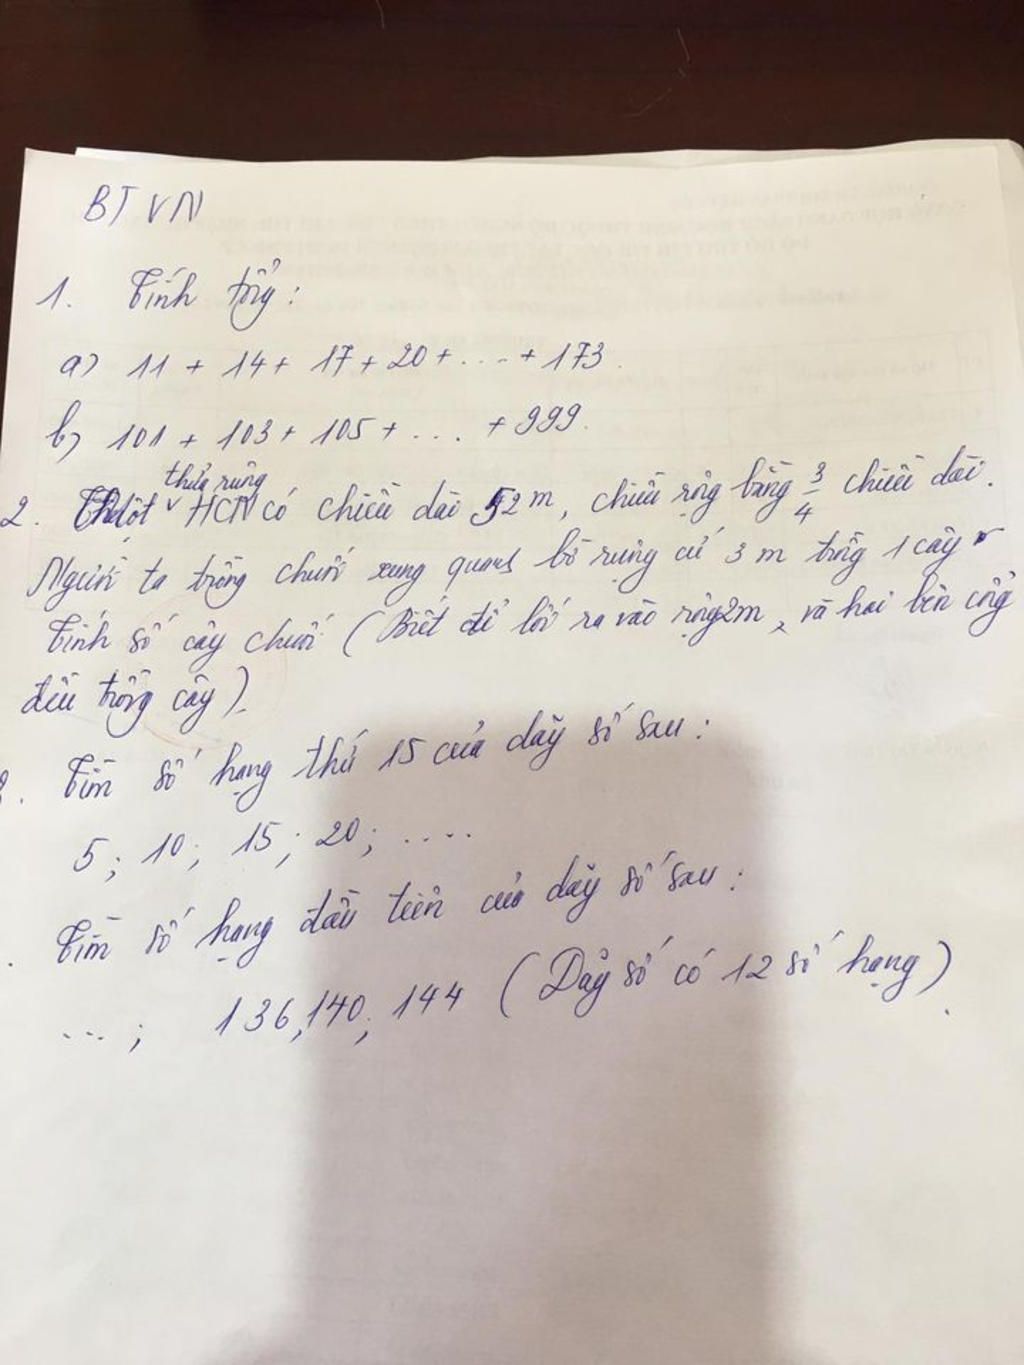 BTVN
1. Tính tổng:
a) 11 + 14 + 17 + 20 + ... + 173.
b) 101 + 103 + 105 + ... + 999.
thửa ruộng
2. Một v HCN có chiều dài 52m, chiều rộng bằng 3/4 chiều dài.
Người ta trồng chuối xung quanh bờ ruộng cứ 3m trồng 1 cây
Tính số cây chuối (Biết để lối ra vào rộng 2m, và hai bên cổng
đều trồng cây).
Tìm số hạng thứ 15 của dãy số sau:
5; 10; 15; 20; ....
Tìm số hạng đầu tiên của dãy số sau:
...; 136, 140; 144 (Dãy số có 12 số hạng).